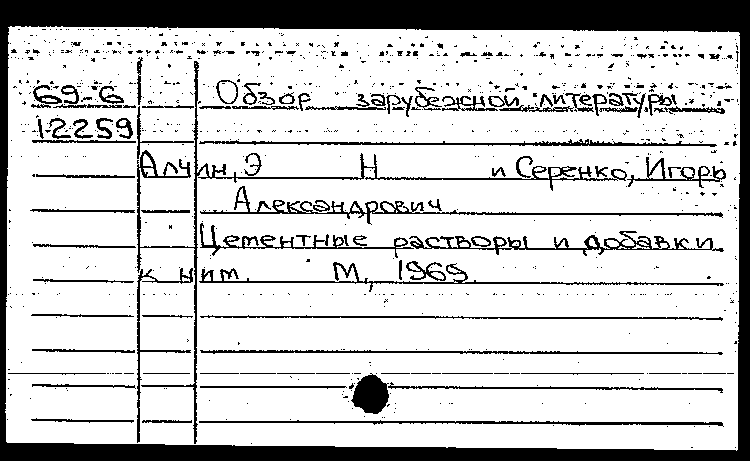 69-6 Обзор зарубежной литературы
12259
Алчин, Э Н и Серенко, Игорь
Александрович
Цементные растворы и добавки
к ним. М., 1969.